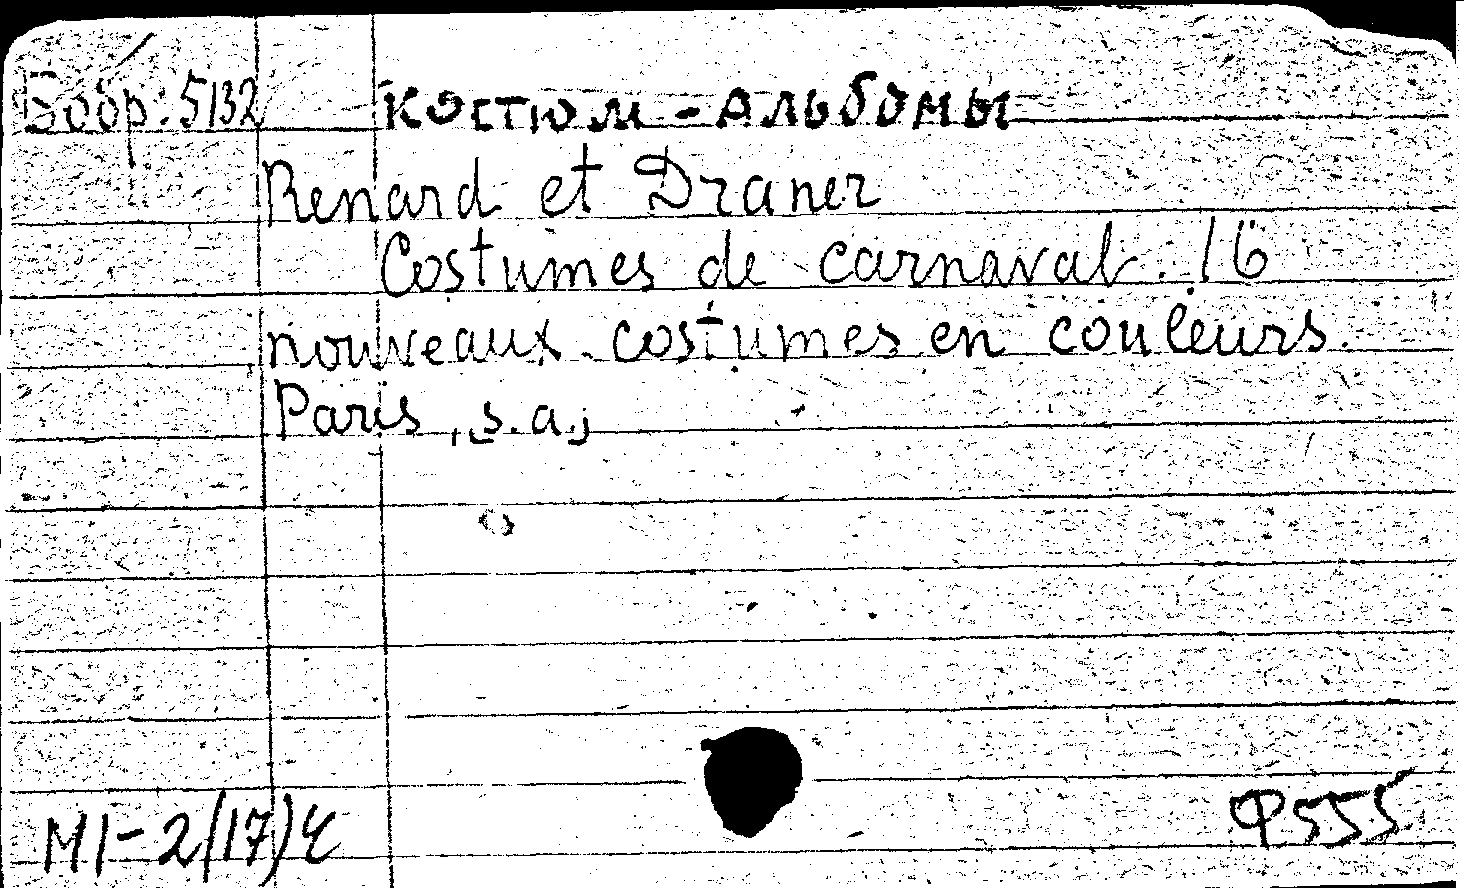 Бобр. 5132 Костюм - Альбомы
Renard et Draner
Costumes de carnaval. 16
nouveaux costumes en couleurs.
Paris, s. a.;
МI-2/17)4 Ф555